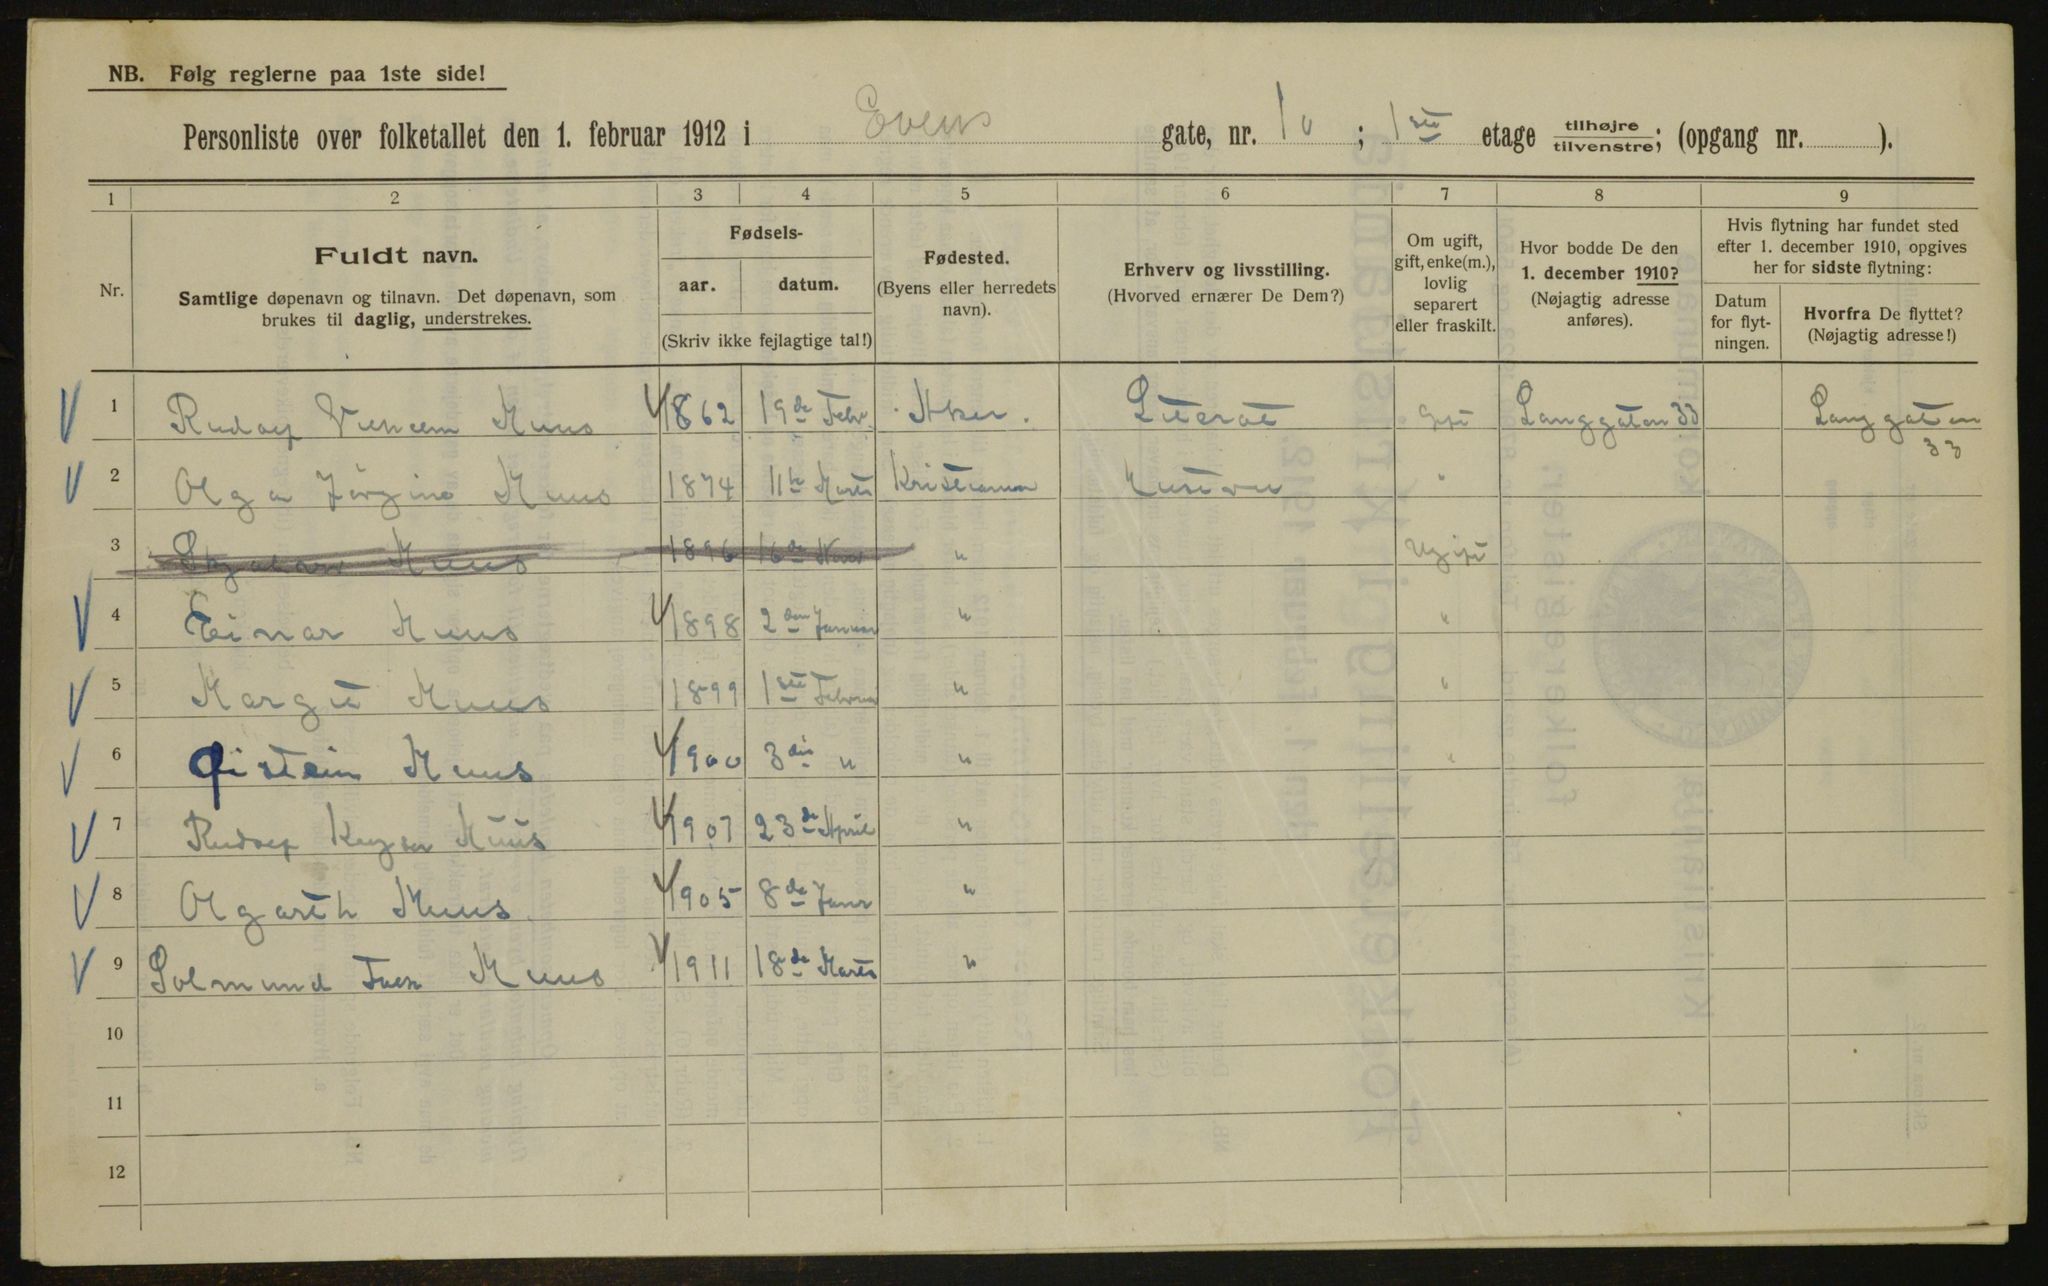 NB. Følg reglerne paa 1ste side!
Personliste over folketallet den 1. februar 1912 i Evens gate, nr. 10; 1ste etage tilhøjre tilvenstre; (opgang nr. ).
1 2 3 4 5 6 7 8 9
Nr.
Fuldt navn.
Samtlige døpenavn og tilnavn. Det døpenavn, som
brukes til daglig, understrekes.
Fødsels-
aar. datum.
(Skriv ikke fejlagtige tal!)
Fødested.
(Byens eller herredets
navn).
Erhverv og livsstilling.
(Hvorved ernærer De Dem?)
Om ugift,
gift, enke(m.),
lovlig
separert
eller fraskilt.
Hvor bodde De den
1. december 1910?
(Nøjagtig adresse
anføres).
Hvis flytning har fundet sted
efter 1. december 1910, opgives
her for sidste flytning:
Datum
for flyt-
ningen.
Hvorfra De flyttet?
(Nøjagtig adresse!)
1 Rudolf Vilhelm Muus 1862 19de Febr. Aker. Literat Gift Langgaten 33 Langgaten
33
2 Olga Jörgine Muus 1874 11te Marts Kristiania Hustru "
3 Muus 1896 16de " Ugift
4 Einar Muus 1898 2den Januar " "
5 Margit Muus 1899 1ste Februar " "
6 Øistein Muus 1900 3die " " "
7 Rudolf Keyser Muus 1907 23de April "
8 Olgarith Muus 1905 8de Janr "
9 Solmund Muus 1911 18de Marts "
10
11
12